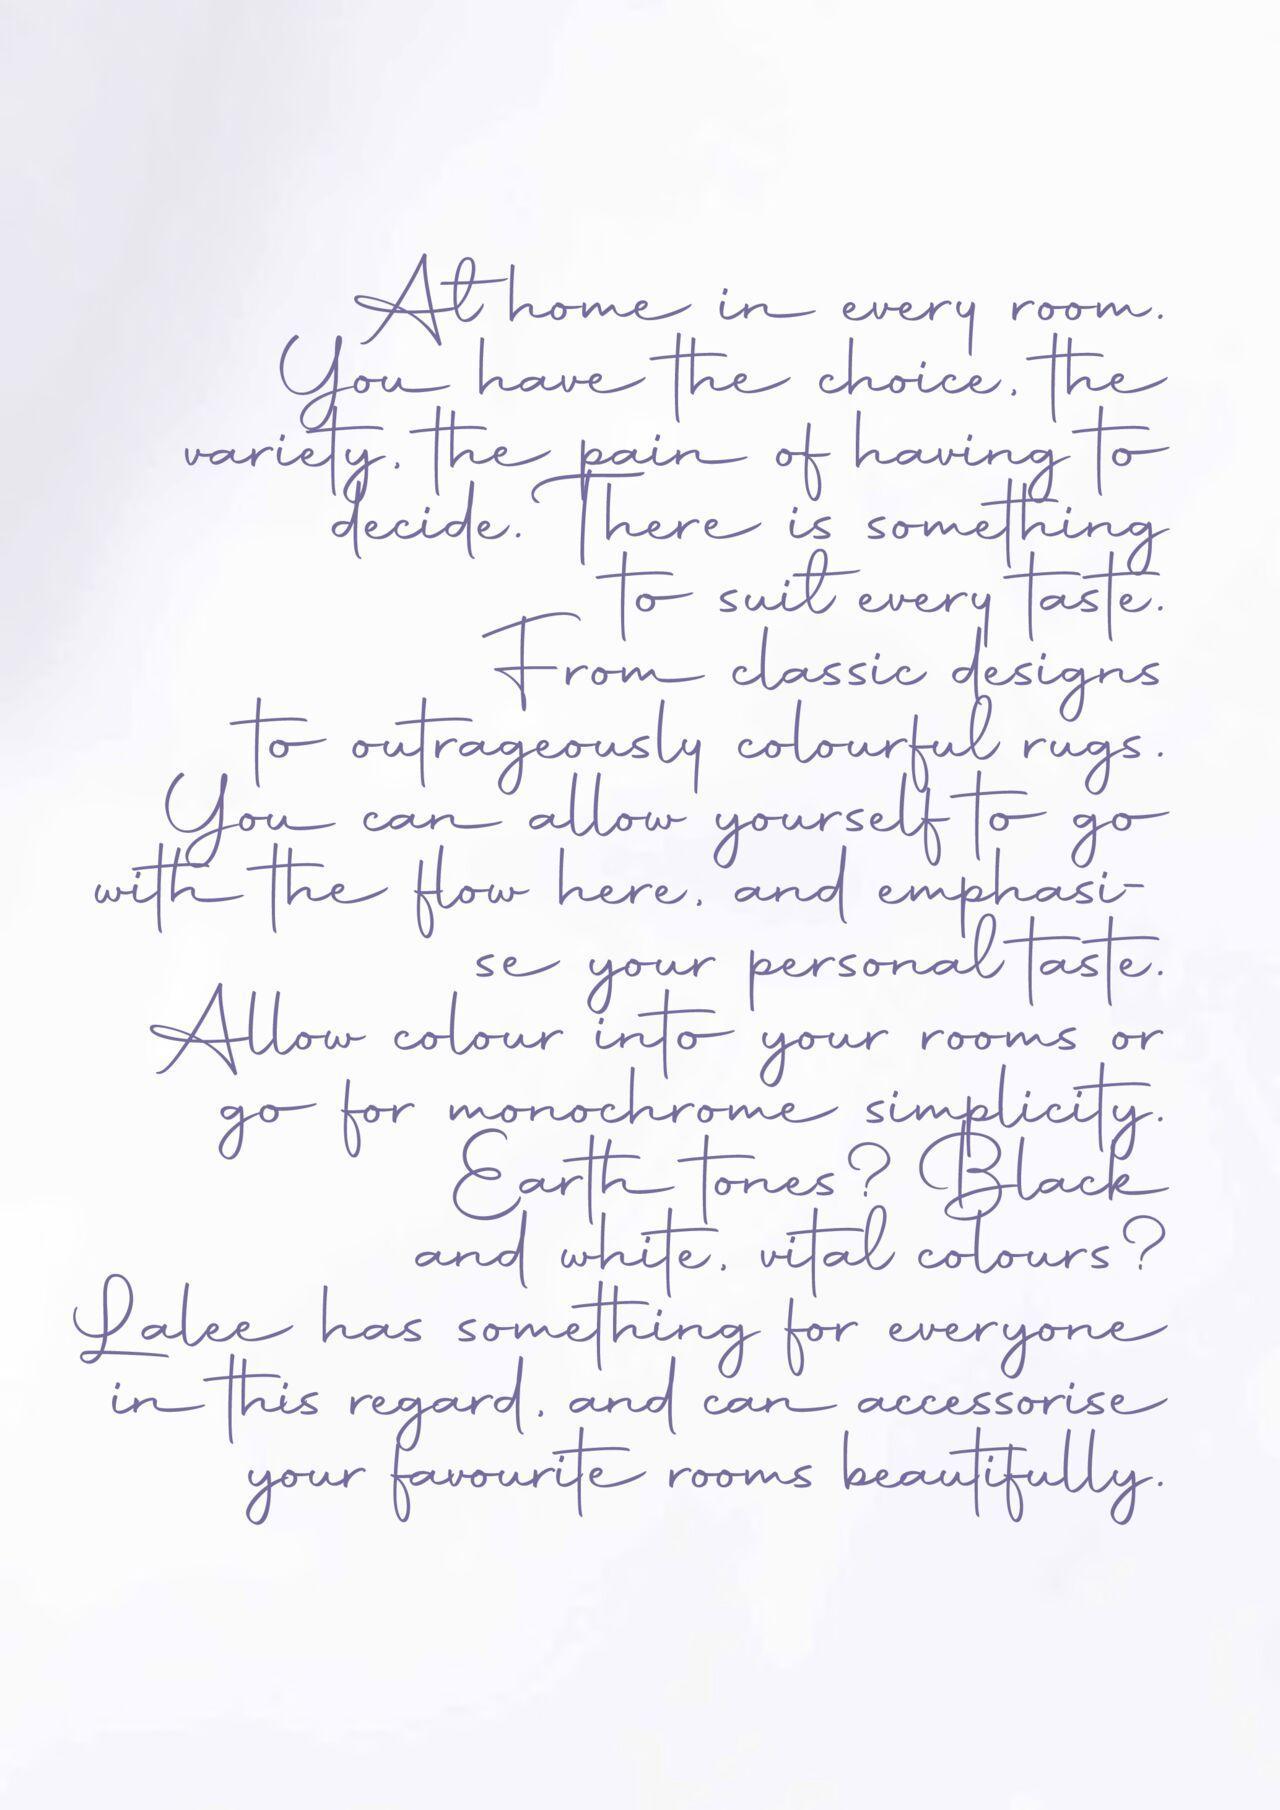 At home in every room.
You have the choice, the
variety, the pain of having to
decide. There is something
to suit every taste.
From classic designs
to outrageously colourful rugs.
You can allow yourself to go
with the flow here, and emphasi-
se your personal taste.
Allow colour into your rooms or
go for monochrome simplicity.
Earth tones? Black
and white, vital colours?
Lalee has something for everyone
in this regard, and can accessorise
your favourite rooms beautifully.